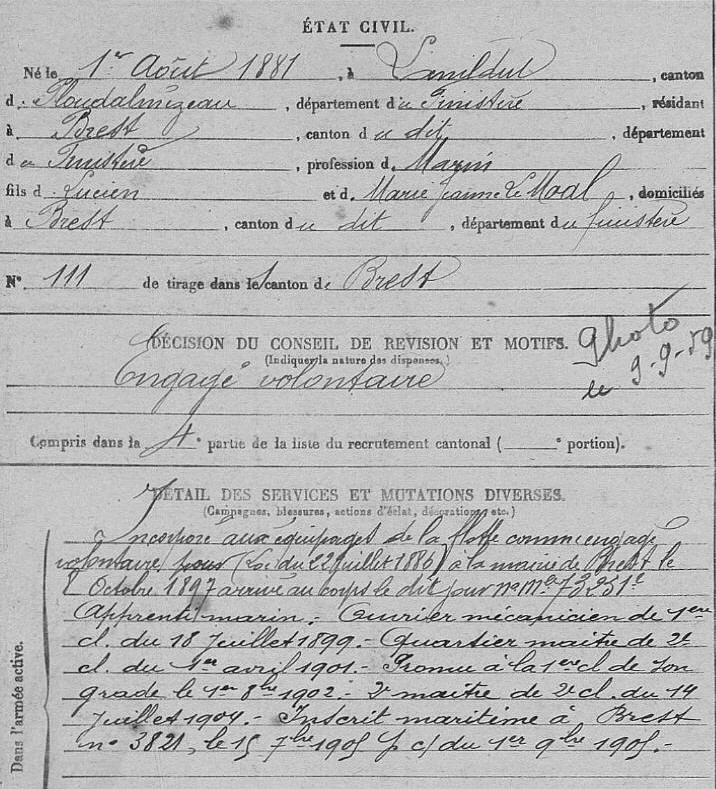 ÉTAT CIVIL.
Né le 1er Août 1881, à Lanildut, canton
d. Ploudalmézeau, département du Finistère, résidant
à Brest, canton du dit, département
du Finistère, profession d. Marin
fils d. Lucien et d. Marie Jeanne Le Moal, domiciliés
à Brest, canton du dit, département du finistère
N° 111 de tirage dans le canton de Brest
DÉCISION DU CONSEIL DE REVISION ET MOTIFS.
(Indiquer la nature des dispenses.)
Photo
le 9-9-59
Engagé volontaire
Compris dans la 4e partie de la liste du recrutement cantonal ( e portion).
DÉTAIL DES SERVICES ET MUTATIONS DIVERSES.
(Campagnes, blessures, actions d'éclat, décorations, etc.)
Dans l'armée active.
Incorporé aux équipages de la flotte comme engagé
volontaire (Loi du 22 juillet 1886) à la mairie de Brest le
Octobre 1897 arrivé au corps le dit jour no Mle 73231e
Apprenti marin. Ouvrier mécanicien de 1ere
cl. du 18 Juillet 1899.- Quartier maitre de 2e
cl. du 1er avril 1901.- Promu à la 1ere cl de son
grade le 1er 8bre 1902.- 2e maitre de 2e cl. du 14
Juillet 1904.- Inscrit maritime à Brest
no 3821, le 15 7bre 1905 p c/ du 1er 9bre 1905.-